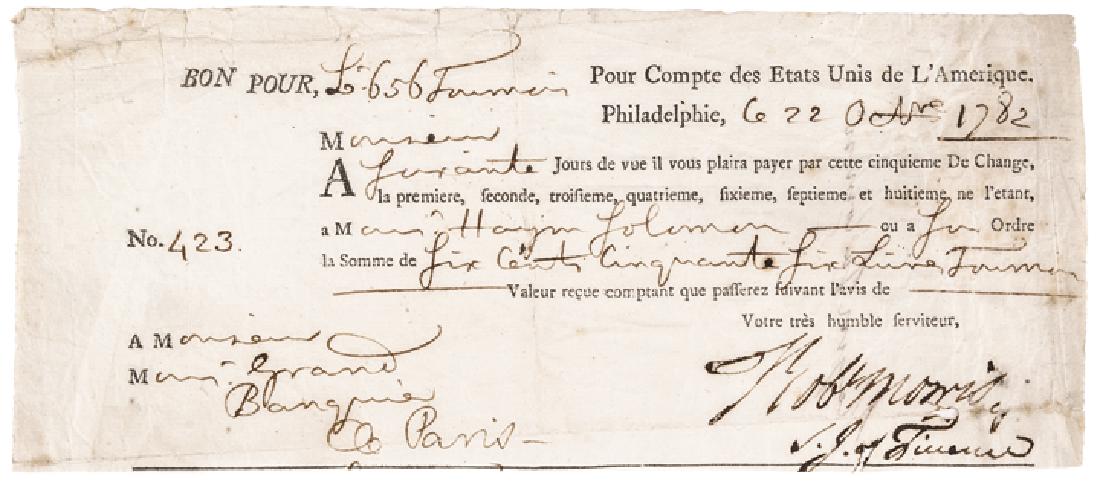 BON POUR, Ls. 656 Tournois Pour Compte des Etats Unis de L'Amerique.
Philadelphie, le 22 Octbre 1782
Monsieur
A Soixante Jours de vue il vous plaira payer par cette cinquieme De Change,
la premiere, seconde, troisieme, quatrieme, sixieme, septieme et huitieme ne l'etant,
No. 423. a Monsr. Haym Solomon ou a son Ordre
la Somme de Six Cents Cinquante Six Livres Tournois
Valeur reçue comptant que passerez suivant l'avis de
Votre très humble serviteur,
A Monsieur
Monsr. Grand
Banquier
à Paris
Robt Morris
S. I. of Finance